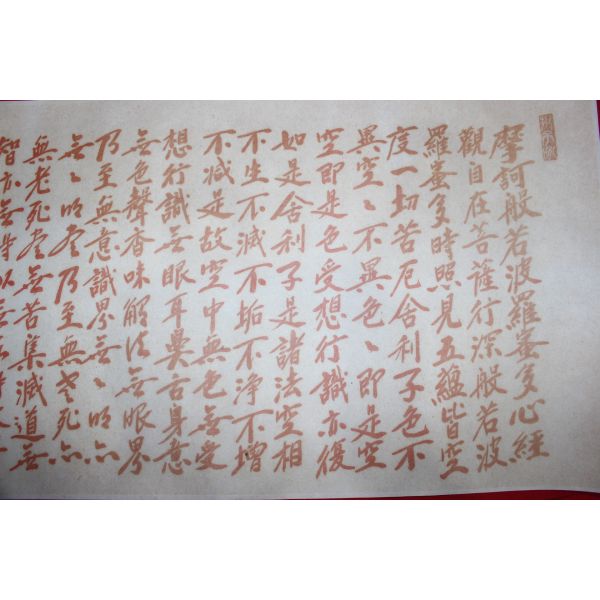 摩訶般若波羅蜜多心經
觀自在菩薩行深般若波
羅蜜多時照見五蘊皆空
度一切苦厄舍利子色不
異空〻不異色〻即是空
空即是色受想行識亦復
如是舍利子是諸法空相
不生不滅不垢不淨不增
不減是故空中無色無受
想行識無眼耳鼻舌身意
無色聲香味觸法無眼界
乃至無意識界無〻明亦
無〻明盡乃至無老死亦
無老死盡無苦集滅道無
智亦無得以無